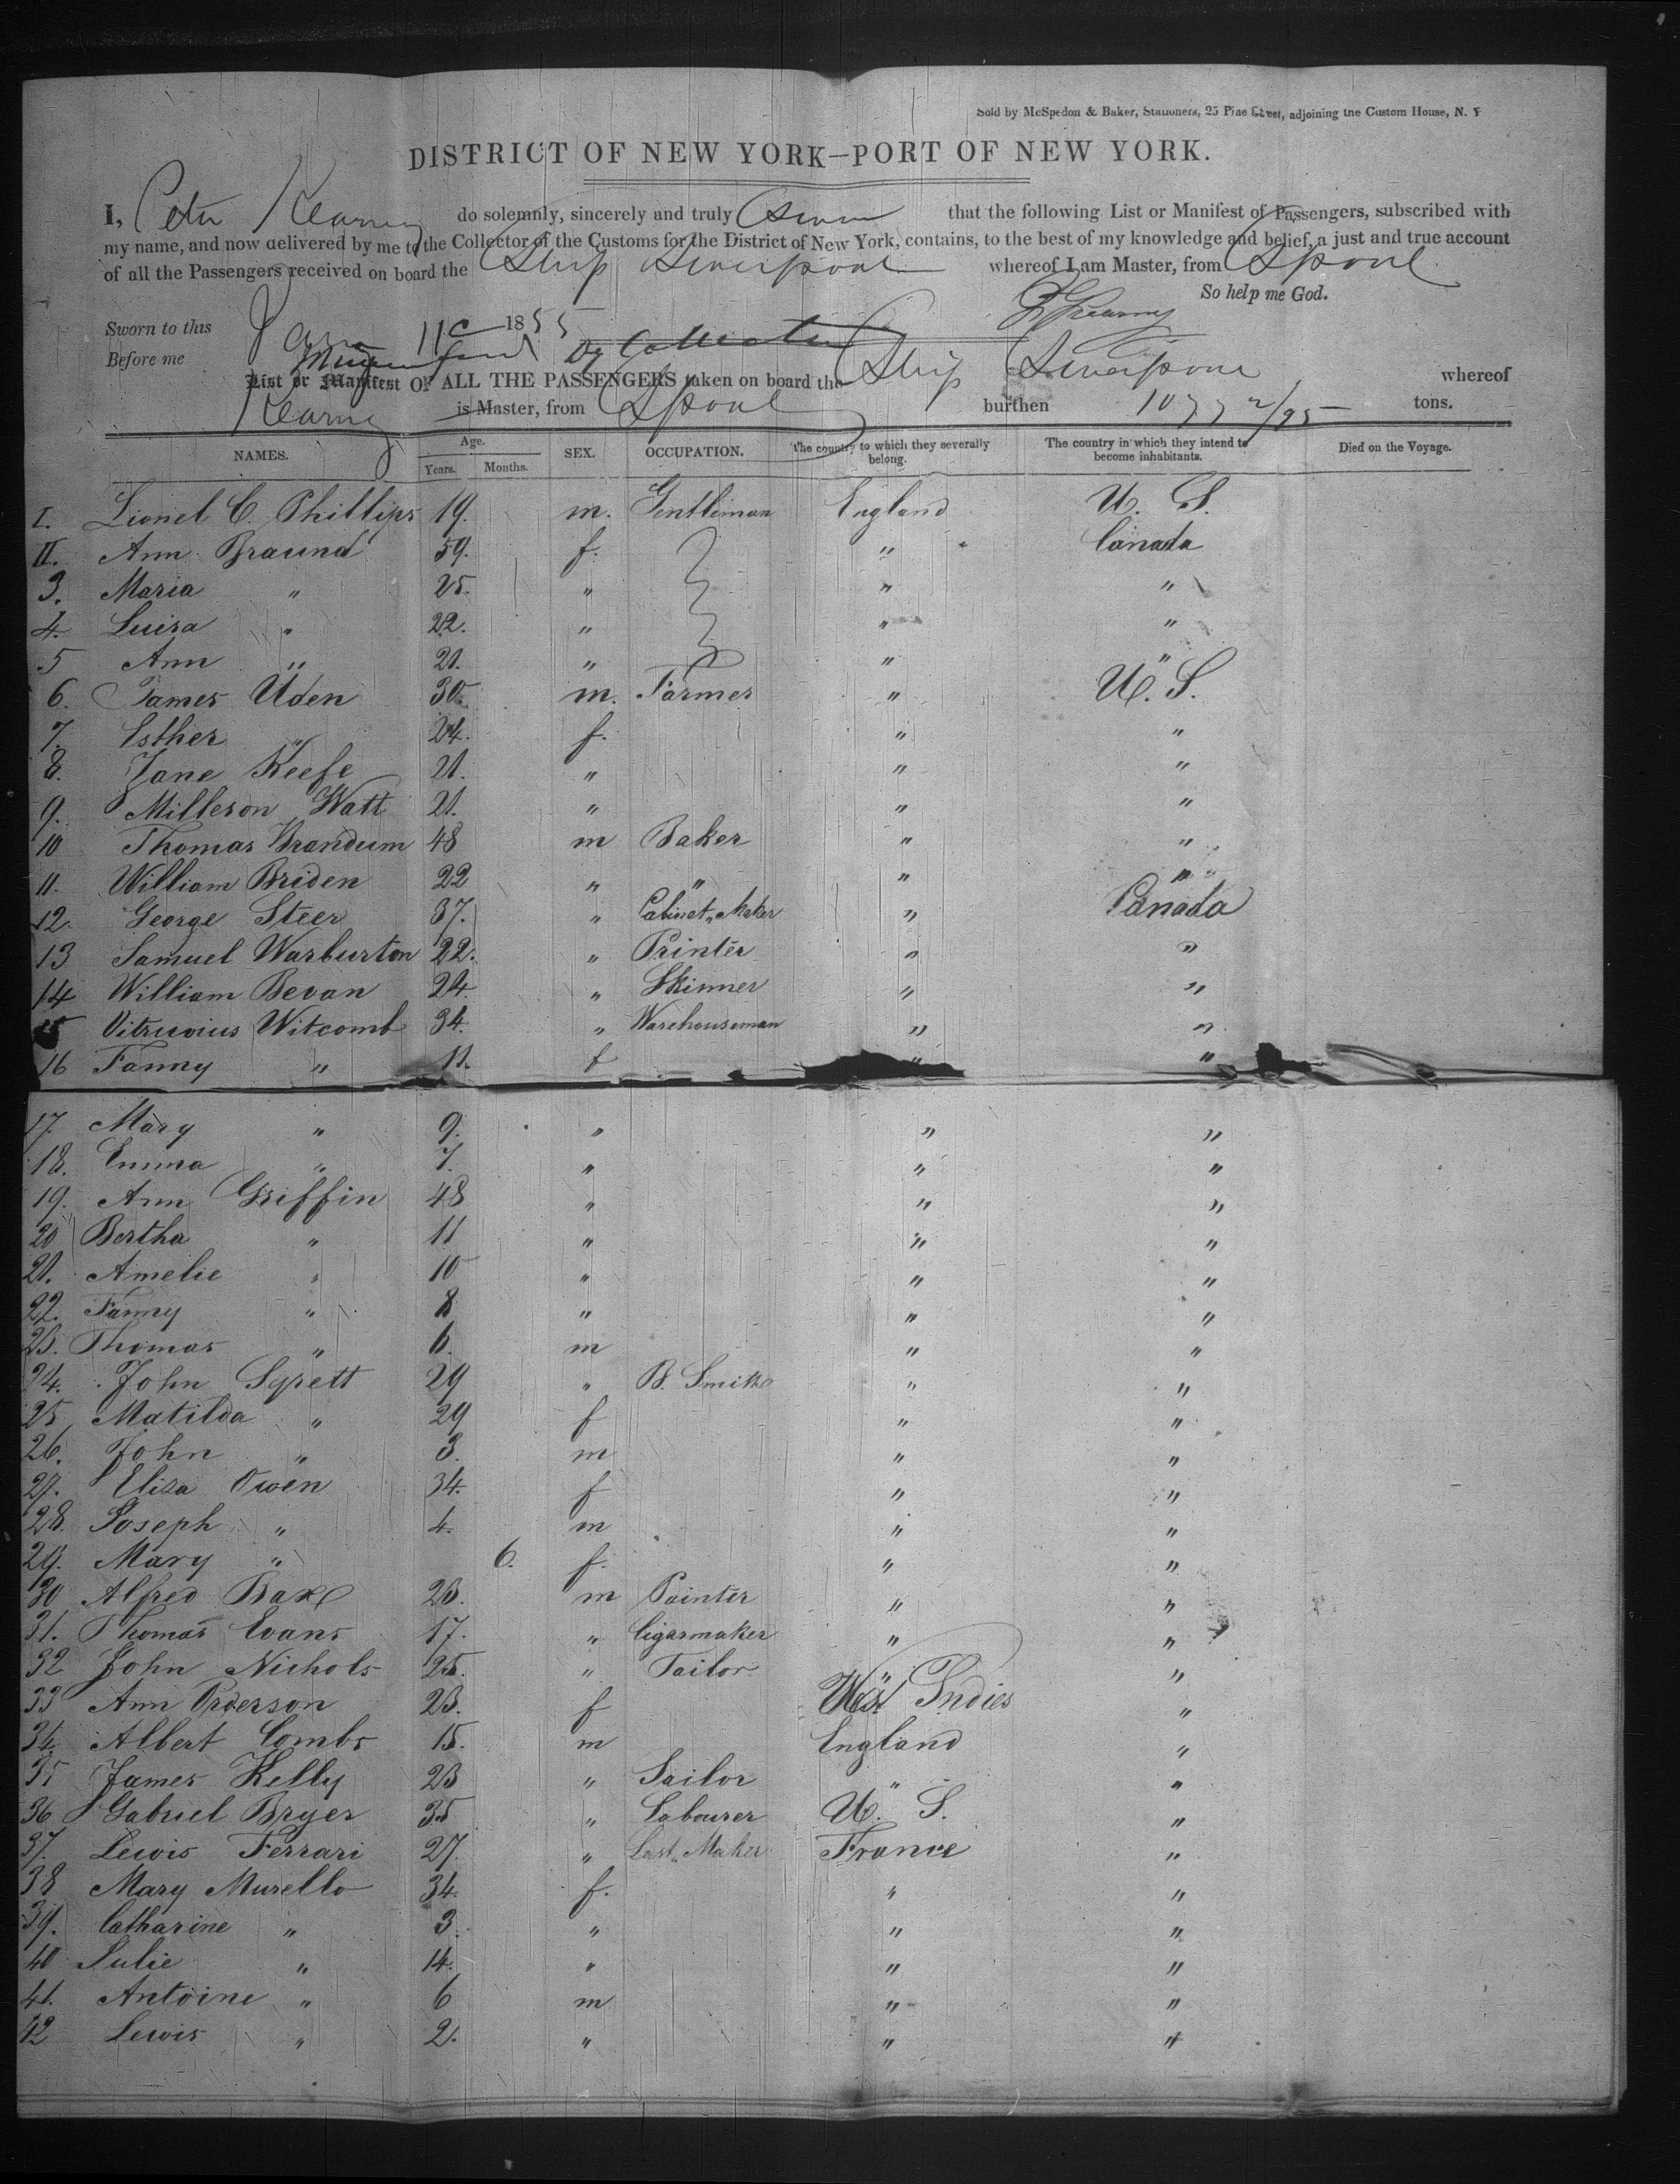 Sold by McSpedon & Baker, Stationers, 25 Pine Street, adjoining the Custom House, N. Y
DISTRICT OF NEW YORK—PORT OF NEW YORK.
I, Peter Kearney do solemnly, sincerely and truly Swear that the following List or Manifest of Passengers, subscribed with
my name, and now delivered by me to the Collector of the Customs for the District of New York, contains, to the best of my knowledge and belief, a just and true account
of all the Passengers received on board the Ship Liverpool whereof I am Master, from Lpool
So help me God.
Sworn to this Jany 11 1855 P Kearney
Before me Dy Collector
List or Manifest OF ALL THE PASSENGERS taken on board the Ship Liverpool whereof
Kearney is Master, from Lpool burthen 1077 2/95 tons.
NAMES. Age. Years. Months. SEX. OCCUPATION. The country to which they severally belong. The country in which they intend to become inhabitants. Died on the Voyage.
I. Lionel C. Phillips 19. m. Gentleman England U. S.
II. Ann Braund 59. f. " Canada
3. Maria " 25. " " "
4. Luisa " 22. " " "
5 Ann " 21. " " "
6. James Uden 30. m. Farmer " U. S.
7. Esther " 24. f. " "
8. Jane Keefe 21. " " "
9. Milleson Watt 21. " " "
10 Thomas Brandum 48 m Baker " "
11. William Briden 22 " " " "
12. George Steer 37. " Cabinet„Maker " Canada
13 Samuel Warburton 22. " Printer " "
14 William Bevan 24. " Skinner " "
15 Vitruvius Witcomb 34. " Warehouseman " "
16 Fanny " 11. f " "
17. Mary " 9. " " "
18. Emma " 7. " " "
19. Ann Griffin 48 " " "
20 Bertha " 11 " " "
21. Amelie " 10 " " "
22. Fanny " 8 " " "
23. Thomas " 6. m " "
24. John Syrett 29 " B. Smith " "
25 Matilda " 29 f " "
26. John " 3. m " "
27. Elisa Owen 34. f " "
28. Joseph " 4. m " "
29. Mary " 6. f. " "
30 Alfred Baxe 23. m Painter " "
31. Thomas Evans 17. " Cigarmaker " "
32 John Nichols 25. " Tailor " "
33 Ann Orderson 23. f West Indies "
34. Albert Combs 15. m England "
35 James Kelly 23 " Sailor " "
36 Gabriel Bryer 35 " Labourer U. S. "
37. Lewis Ferrari 27. " Last„Maker France "
38 Mary Murello 34. f. " "
39. Catharine " 3. " " "
40 Julie " 14. " " "
41. Antoine " 6 m " "
42 Lewis " 2. " " "